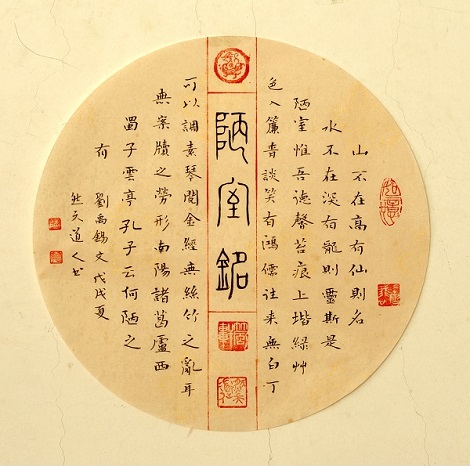 山不在高有仙則名
水不在深有龍則靈斯是
陋室惟吾德馨苔痕上堦綠艸
色入簾青談笑有鴻儒往来無白丁
陋室銘
可以調素琴閱金經無絲竹之亂耳
無案牘之勞形南陽諸葛廬西
蜀子雲亭孔子云何陋之
有
劉禹錫文戊戌夏
道人书